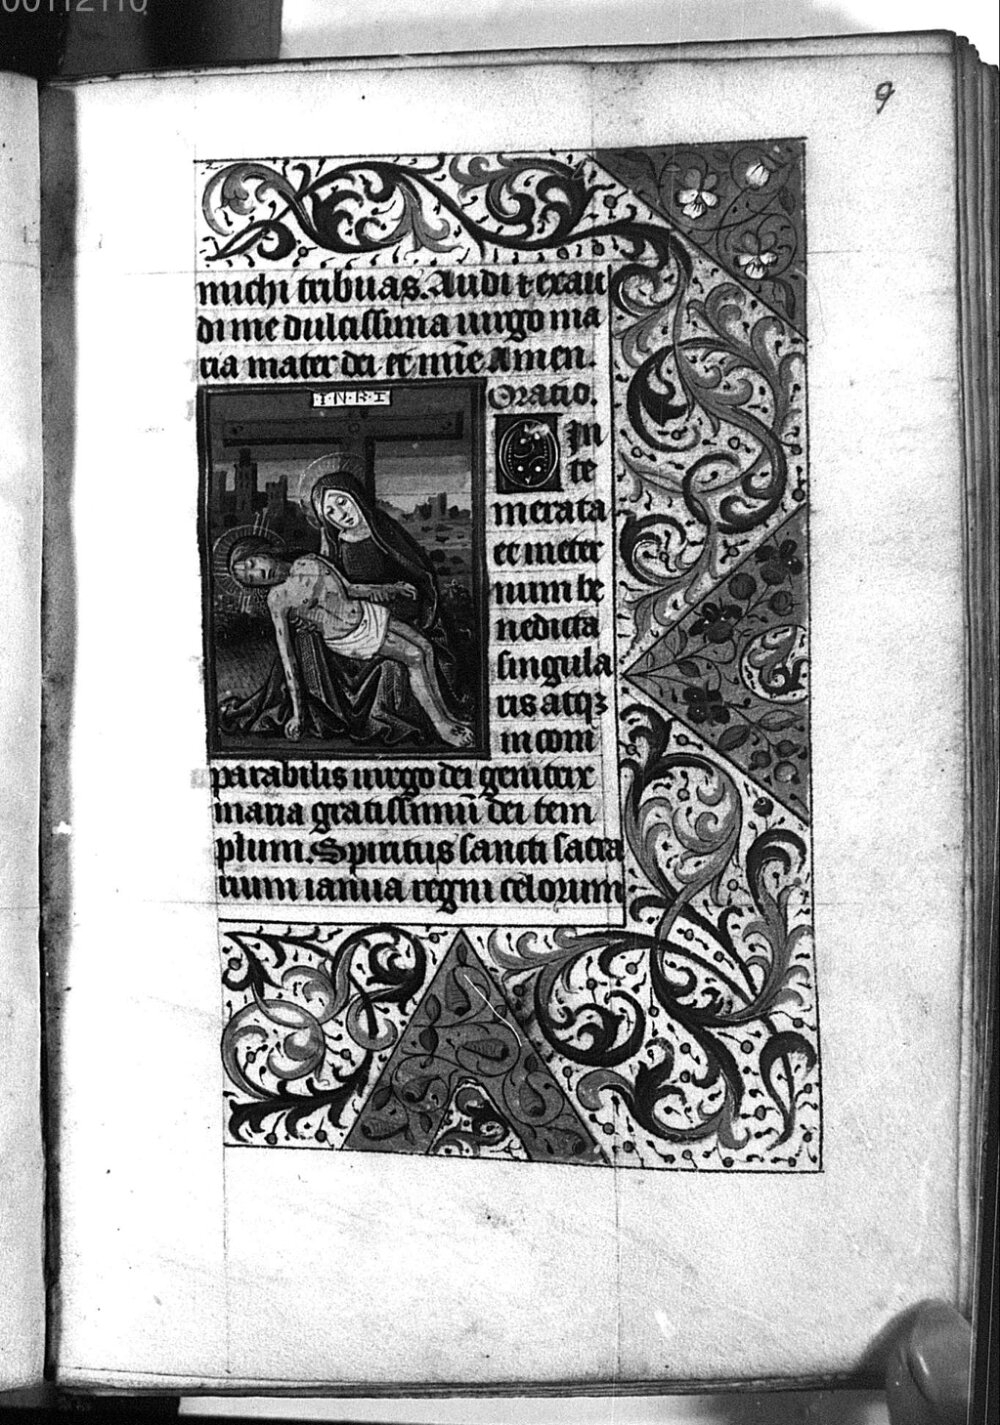 00112110
9
michi tribuas. Audi ⁊ exau
di me dulcissima uirgo ma
ria mater dei et mīe Amen.
Oratio.
I·N·R·I
O In
te
merata
et in eter
num be
nedicta
singula
ris atqꝫ
incom
parabilis uirgo dei genitrix
maria gratissimū dei tem
plum. Spiritus sancti sacra
rium ianua regni celorum